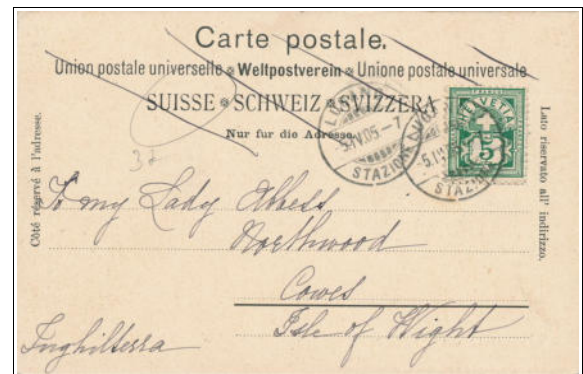 Carte postale.
Union postale universelle Weltpostverein Unione postale universale
SUISSE SCHWEIZ SVIZZERA
Nur für die Adresse.
Côté réservé à l'adresse.
Lato riservato all' indirizzo.
HELVETIA
5
LUGANO
5.IV.05-7
STAZIONE
LUGANO
5.IV
STAZIONE
32
To my Lady Abbess
Northwood
Cowes
Isle of Wight
Inghilterra